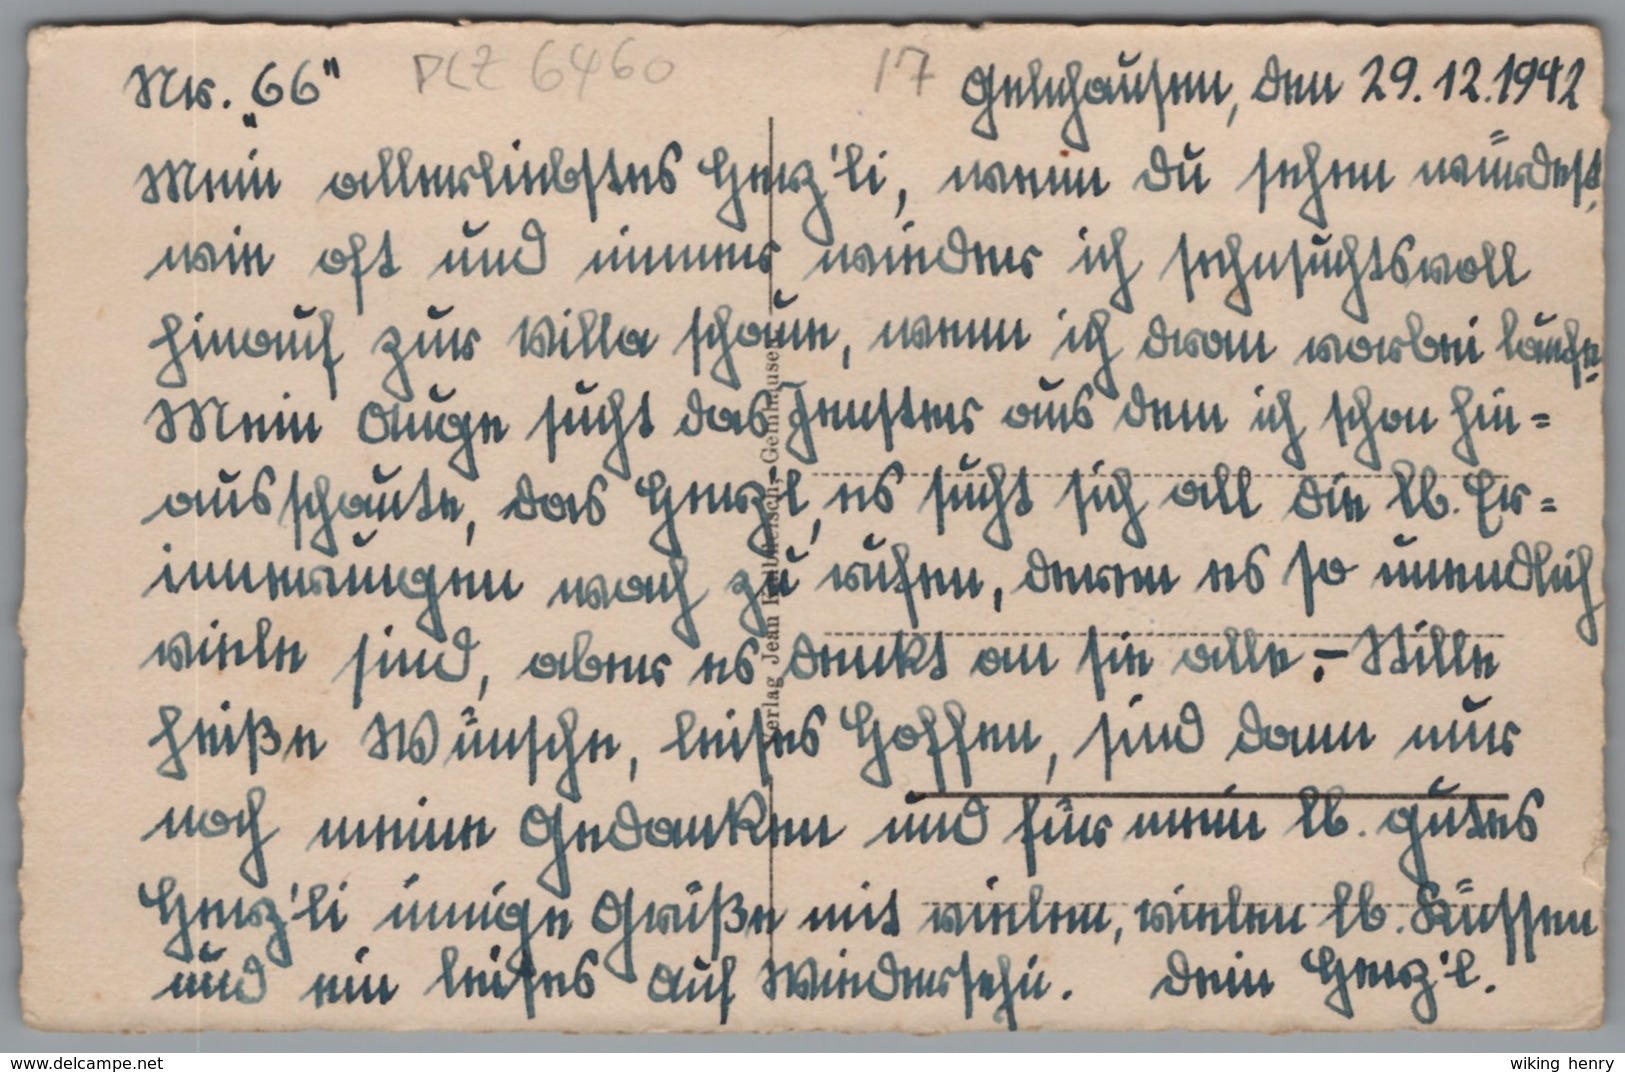 Nr. „66" PLZ 6460 17 Gelnhausen, den 29.12.1942
Mein allerliebstes Herz'li, wenn Du sehen würdest,
wie oft und immer wieder ich sehnsuchtsvoll
hinauf zur Villa schaue, wenn ich dran vorbei laufe.
Mein Auge sucht das Fenster aus dem ich schon hin=
ausschaute, das Herz'l, es sucht sich all die lb. Er=
innerungen wach zu rufen, deren es so unendlich
viele sind, aber es denkt an sie alle.– Stille
heiße Wünsche, leises Hoffen, sind dann nur
noch meine Gedanken und für mein lb. gutes
Herz'li innige Grüße mit vielen, vielen lb. Küssen
und ein leises Auf Wiedersehn. Dein Herz'l.
Verlag Jean Kalbfleisch, Gelnhausen
www.delcampe.net
wiking henry